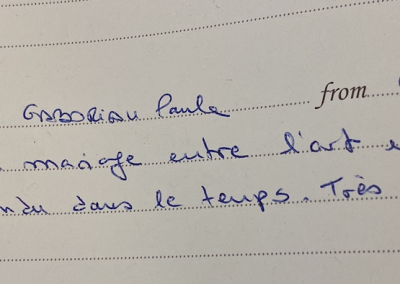 GABORIAU Paule from
mariage entre l'art
dans le temps. Très